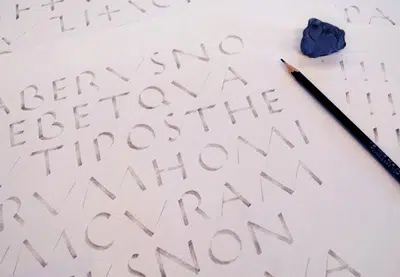 ABERVSNO
EBETQVA
TIPOSTHE
RVMHOMI
MCVRAM
SNON